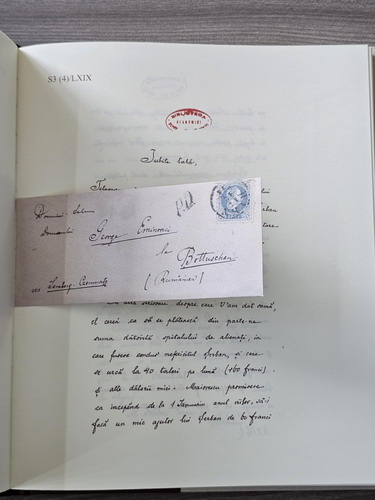 S3 (4)/LXIX
BIBLIOTECA
Iubite tată,
P.D.
Domniei Sale
Domnului
George Eminovici
la
Bottuschan
(Rumänien)
via Lemberg-Czernowitz
scrisoare despre care V'am dat samă,
el cerei ca să se plătească din parte-ne
suma datorită spitalului de alienați, in
care fusese condus nefericitul Șerban, și care
se urcă la 40 taleri pe lună (160 franci)
și alte datorii mici. Maiorescu promisese
ca începînd de la 1 Ianuariu anul viitor, să-i
facă un mic ajutor lui Șerban de 60 franci